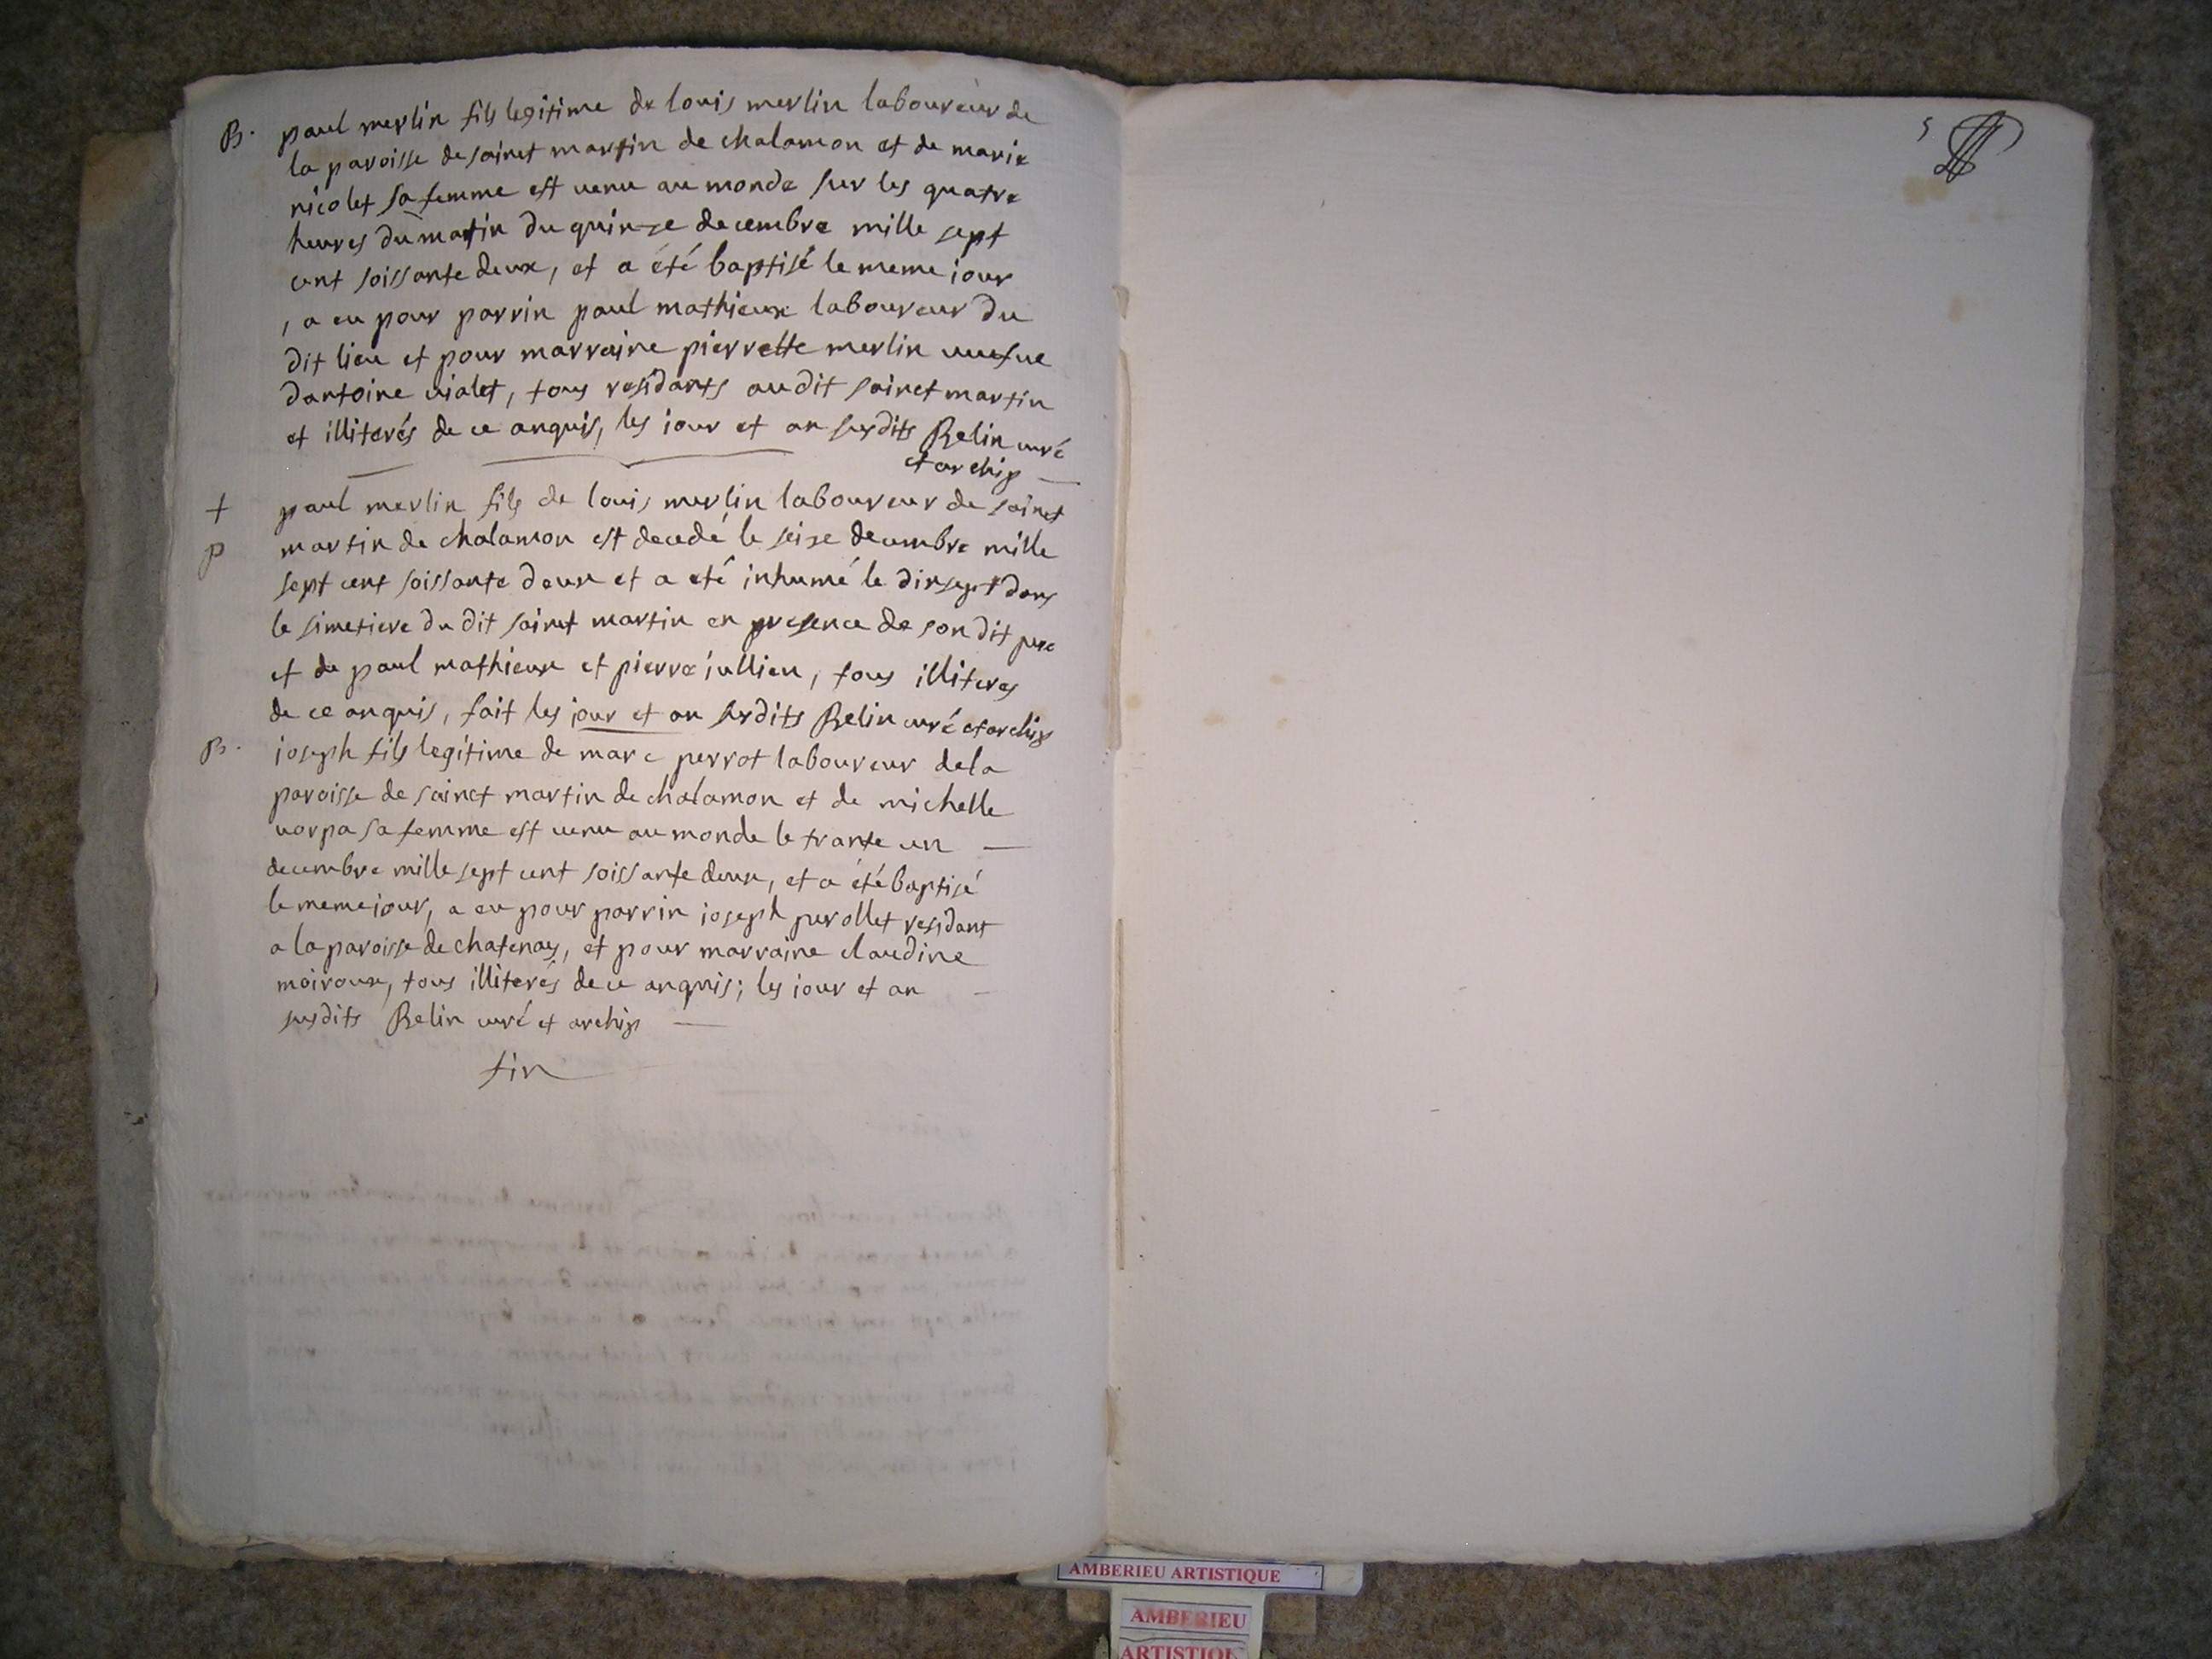 B. paul merlin fils legitime de louis merlin laboureur de
la paroisse de sainct martin de chalamon et de marie
nicolet sa femme est venu au monde sur les quatre
heures du matin du quinze decembre mille sept
cent soissante deux, et a été baptisé le meme jour
, a eu pour parrin paul mathieux laboureur du
dit lieu et pour marraine pierrette merlin veusve
dantoine vialet, tous residants audit sainct martin
et illiterés de ce anquis, les jour et an susdits Belin curé
et archip
+ paul merlin fils de louis merlin laboureur de sainct
p martin de chalamon est decedé le seize decembre mille
sept cent soissante deux et a eté inhumé le dixsept dans
le simetiere du dit sainct martin en presence de son dit pere
et de paul mathieux et pierre jullien, tous illiteres
de ce anquis, fait les jour et an susdits Belin curé et archip
B. joseph fils legitime de marc perrot laboureur de la
paroisse de sainct martin de chalamon et de michelle
varpa sa femme est venu au monde le trante un
decembre mille sept cent soissante deux, et a été baptisé
le meme jour, a eu pour parrin joseph perollet residant
a la paroisse de chatenay, et pour marraine claudine
moiroux, tous illiterés de ce anquis; les jour et an
susdits Belin curé et archip
fin
5
AMBERIEU ARTISTIQUE
AMBERIEU